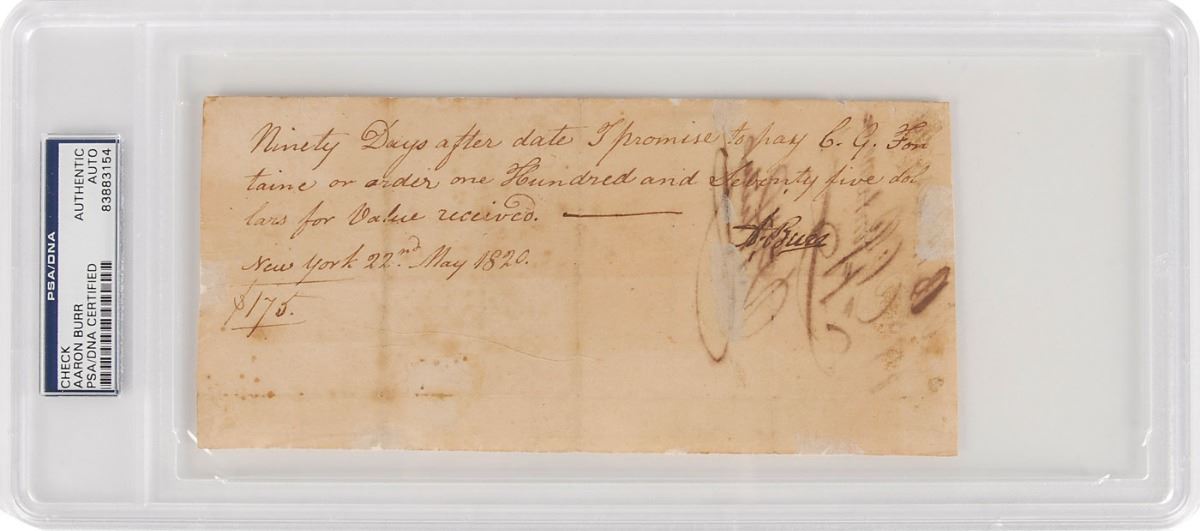 PSA/DNA
CHECK
AARON BURR
PSA/DNA CERTIFIED
AUTHENTIC
AUTO
83883154
Ninety Days after date I promise to pay C. G. Fon
taine or order one Hundred and Seventy five dol
lars for Value received.
A. Burr
New York 22nd. May 1820.
$175.